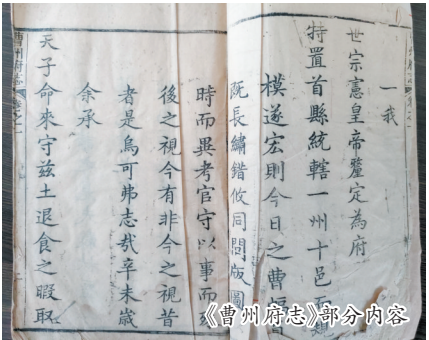 一我
世宗憲皇帝釐定為府
特置首縣統轄一州十邑
模遂宏則今日之曹
阮長繡錯攸同問版圖
時而異考官守以事而
後之視今有非今之視昔
者是烏可弗志哉辛未歲
余承
天子命來守茲土退食之暇取
曹州府志
《曹州府志》部分内容